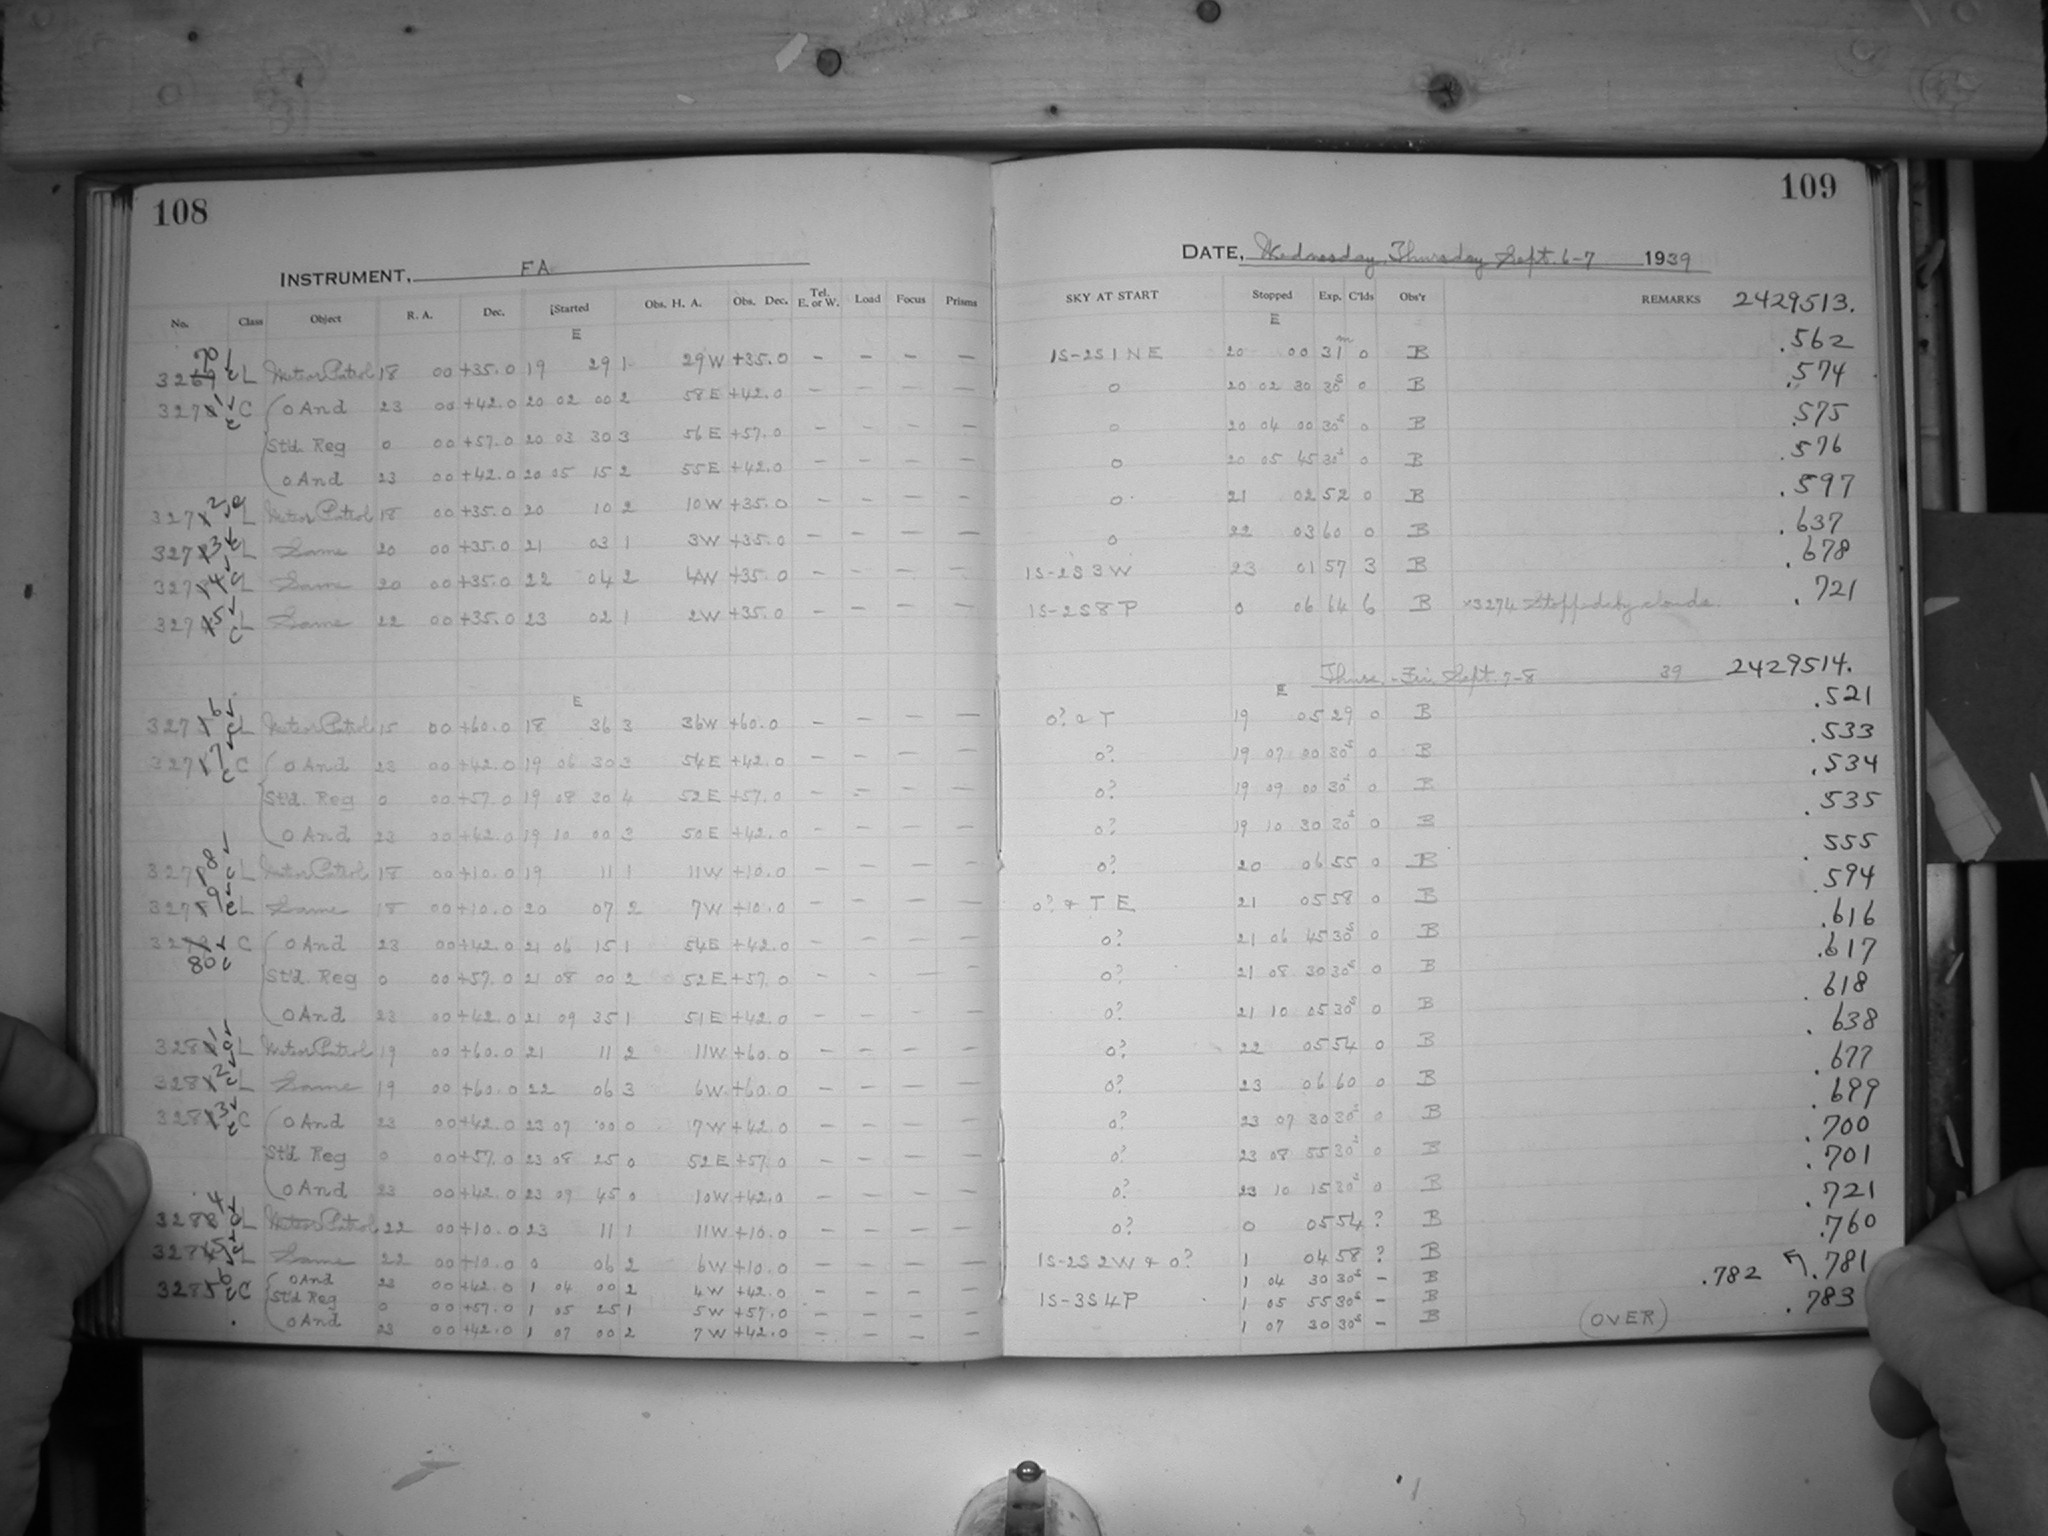 108
INSTRUMENT, FA
No. Class Object R. A. Dec. Started Obs. H. A. Obs. Dec. Tel. E. or W. Load Focus Prisms
E
3269 70 c L Meteor Patrol 18 00 +35.0 19 29 1 29 W +35.0 - - - -
3270 1 c C o And 23 00 +42.0 20 02 00 2 58 E +42.0 - - - -
Std. Reg 0 00 +57.0 20 03 30 3 56 E +57.0 - - - -
o And 23 00 +42.0 20 05 15 2 55 E +42.0 - - - -
3271 2 c L Meteor Patrol 18 00 +35.0 20 10 2 10 W +35.0 - - - -
3272 3 c L Same 20 00 +35.0 21 03 1 3 W +35.0 - - - -
3273 4 c L Same 20 00 +35.0 22 04 2 4 W +35.0 - - - -
3274 5 c L Same 22 00 +35.0 23 02 1 2 W +35.0 - - - -
E
3275 6 c L Meteor Patrol 15 00 +60.0 18 36 3 36 W +60.0 - - - -
3276 7 c C o And 23 00 +42.0 19 06 30 3 54 E +42.0 - - - -
Std. Reg 0 00 +57.0 19 08 30 4 52 E +57.0 - - - -
o And 23 00 +42.0 19 10 00 3 50 E +42.0 - - - -
3277 8 c L Meteor Patrol 18 00 +10.0 19 11 1 11 W +10.0 - - - -
3278 9 c L Same 18 00 +10.0 20 07 2 7 W +10.0 - - - -
3279 80 c C o And 23 00 +42.0 21 06 15 1 54 E +42.0 - - - -
Std. Reg 0 00 +57.0 21 08 00 2 52 E +57.0 - - - -
o And 23 00 +42.0 21 09 35 1 51 E +42.0 - - - -
3280 1 c L Meteor Patrol 19 00 +60.0 21 11 2 11 W +60.0 - - - -
3281 2 c L Same 19 00 +60.0 22 06 3 6 W +60.0 - - - -
3282 3 c C o And 23 00 +42.0 23 07 00 0 7 W +42.0 - - - -
Std Reg 0 00 +57.0 23 08 25 0 52 E +57.0 - - - -
o And 23 00 +42.0 23 09 45 0 10 W +42.0 - - - -
3283 4 c L Meteor Patrol 22 00 +10.0 23 11 1 11 W +10.0 - - - -
3284 5 c L Same 22 00 +10.0 0 06 2 6 W +10.0 - - - -
3285 6 c C o And 23 00 +42.0 1 04 00 2 4 W +42.0 - - - -
Std Reg 0 00 +57.0 1 05 25 1 5 W +57.0 - - - -
o And 23 00 +42.0 1 07 00 2 7 W +42.0 - - - -
109
DATE, Wednesday, Thursday Sept. 6-7 1939
SKY AT START Stopped Exp. C'lds Obs'r REMARKS 2429513.
E
1S-2S1NE 20 00 31m 0 B .562
0 20 02 30 30s 0 B .574
0 20 04 00 30s 0 B .575
0 20 05 45 30s 0 B .576
0 21 02 52 0 B .597
0 22 03 60 0 B .637
1S-2S3W 23 01 57 3 B .678
1S-2S8P 0 06 64 6 B x3274 Stopped by clouds. .721
Thurs.-Fri. Sept. 7-8 39 2429514.
E
0? & T 19 05 29 0 B .521
0? 19 07 00 30s 0 B .533
0? 19 09 00 30s 0 B .534
0? 19 10 30 30s 0 B .535
0? 20 06 55 0 B .555
0? & T E 21 05 58 0 B .594
0? 21 06 45 30s 0 B .616
0? 21 08 30 30s 0 B .617
0? 21 10 05 30s 0 B .618
0? 22 05 54 0 B .638
0? 23 06 60 0 B .677
0? 23 07 30 30s 0 B .699
0? 23 08 55 30s 0 B .700
0? 23 10 15 30s 0 B .701
0? 0 05 54 ? B .721
1S-2S2W & 0? 1 04 58 ? B .760
1S-3S4P 1 04 30 30s - B .781
1 05 55 30s - B .782
1 07 30 30s - B (OVER) .783